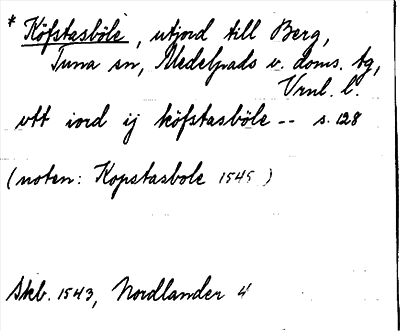 * Köfstasböle, utjord till Berg,
Tuna sn, Medelpads v. doms. tg,
Vrnl. l.
ott iord ij köfstasböle -- s. 128
(noten: Kopstasbole 1545)
Skb. 1543, Nordlander 4